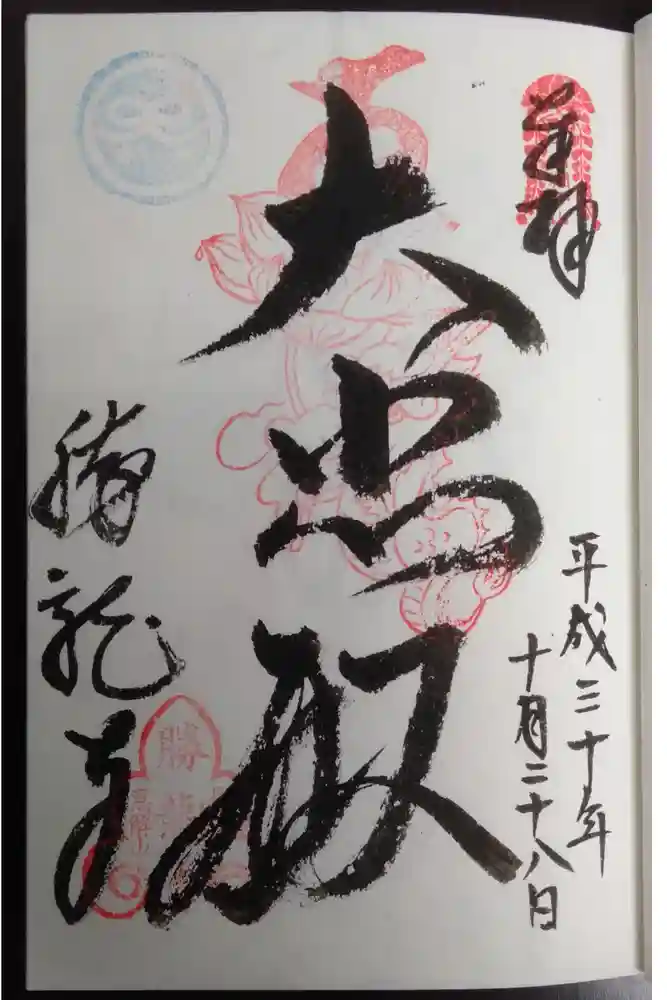 奉拝
平成三十年
十月二十八日
大悲殿
勝龍寺